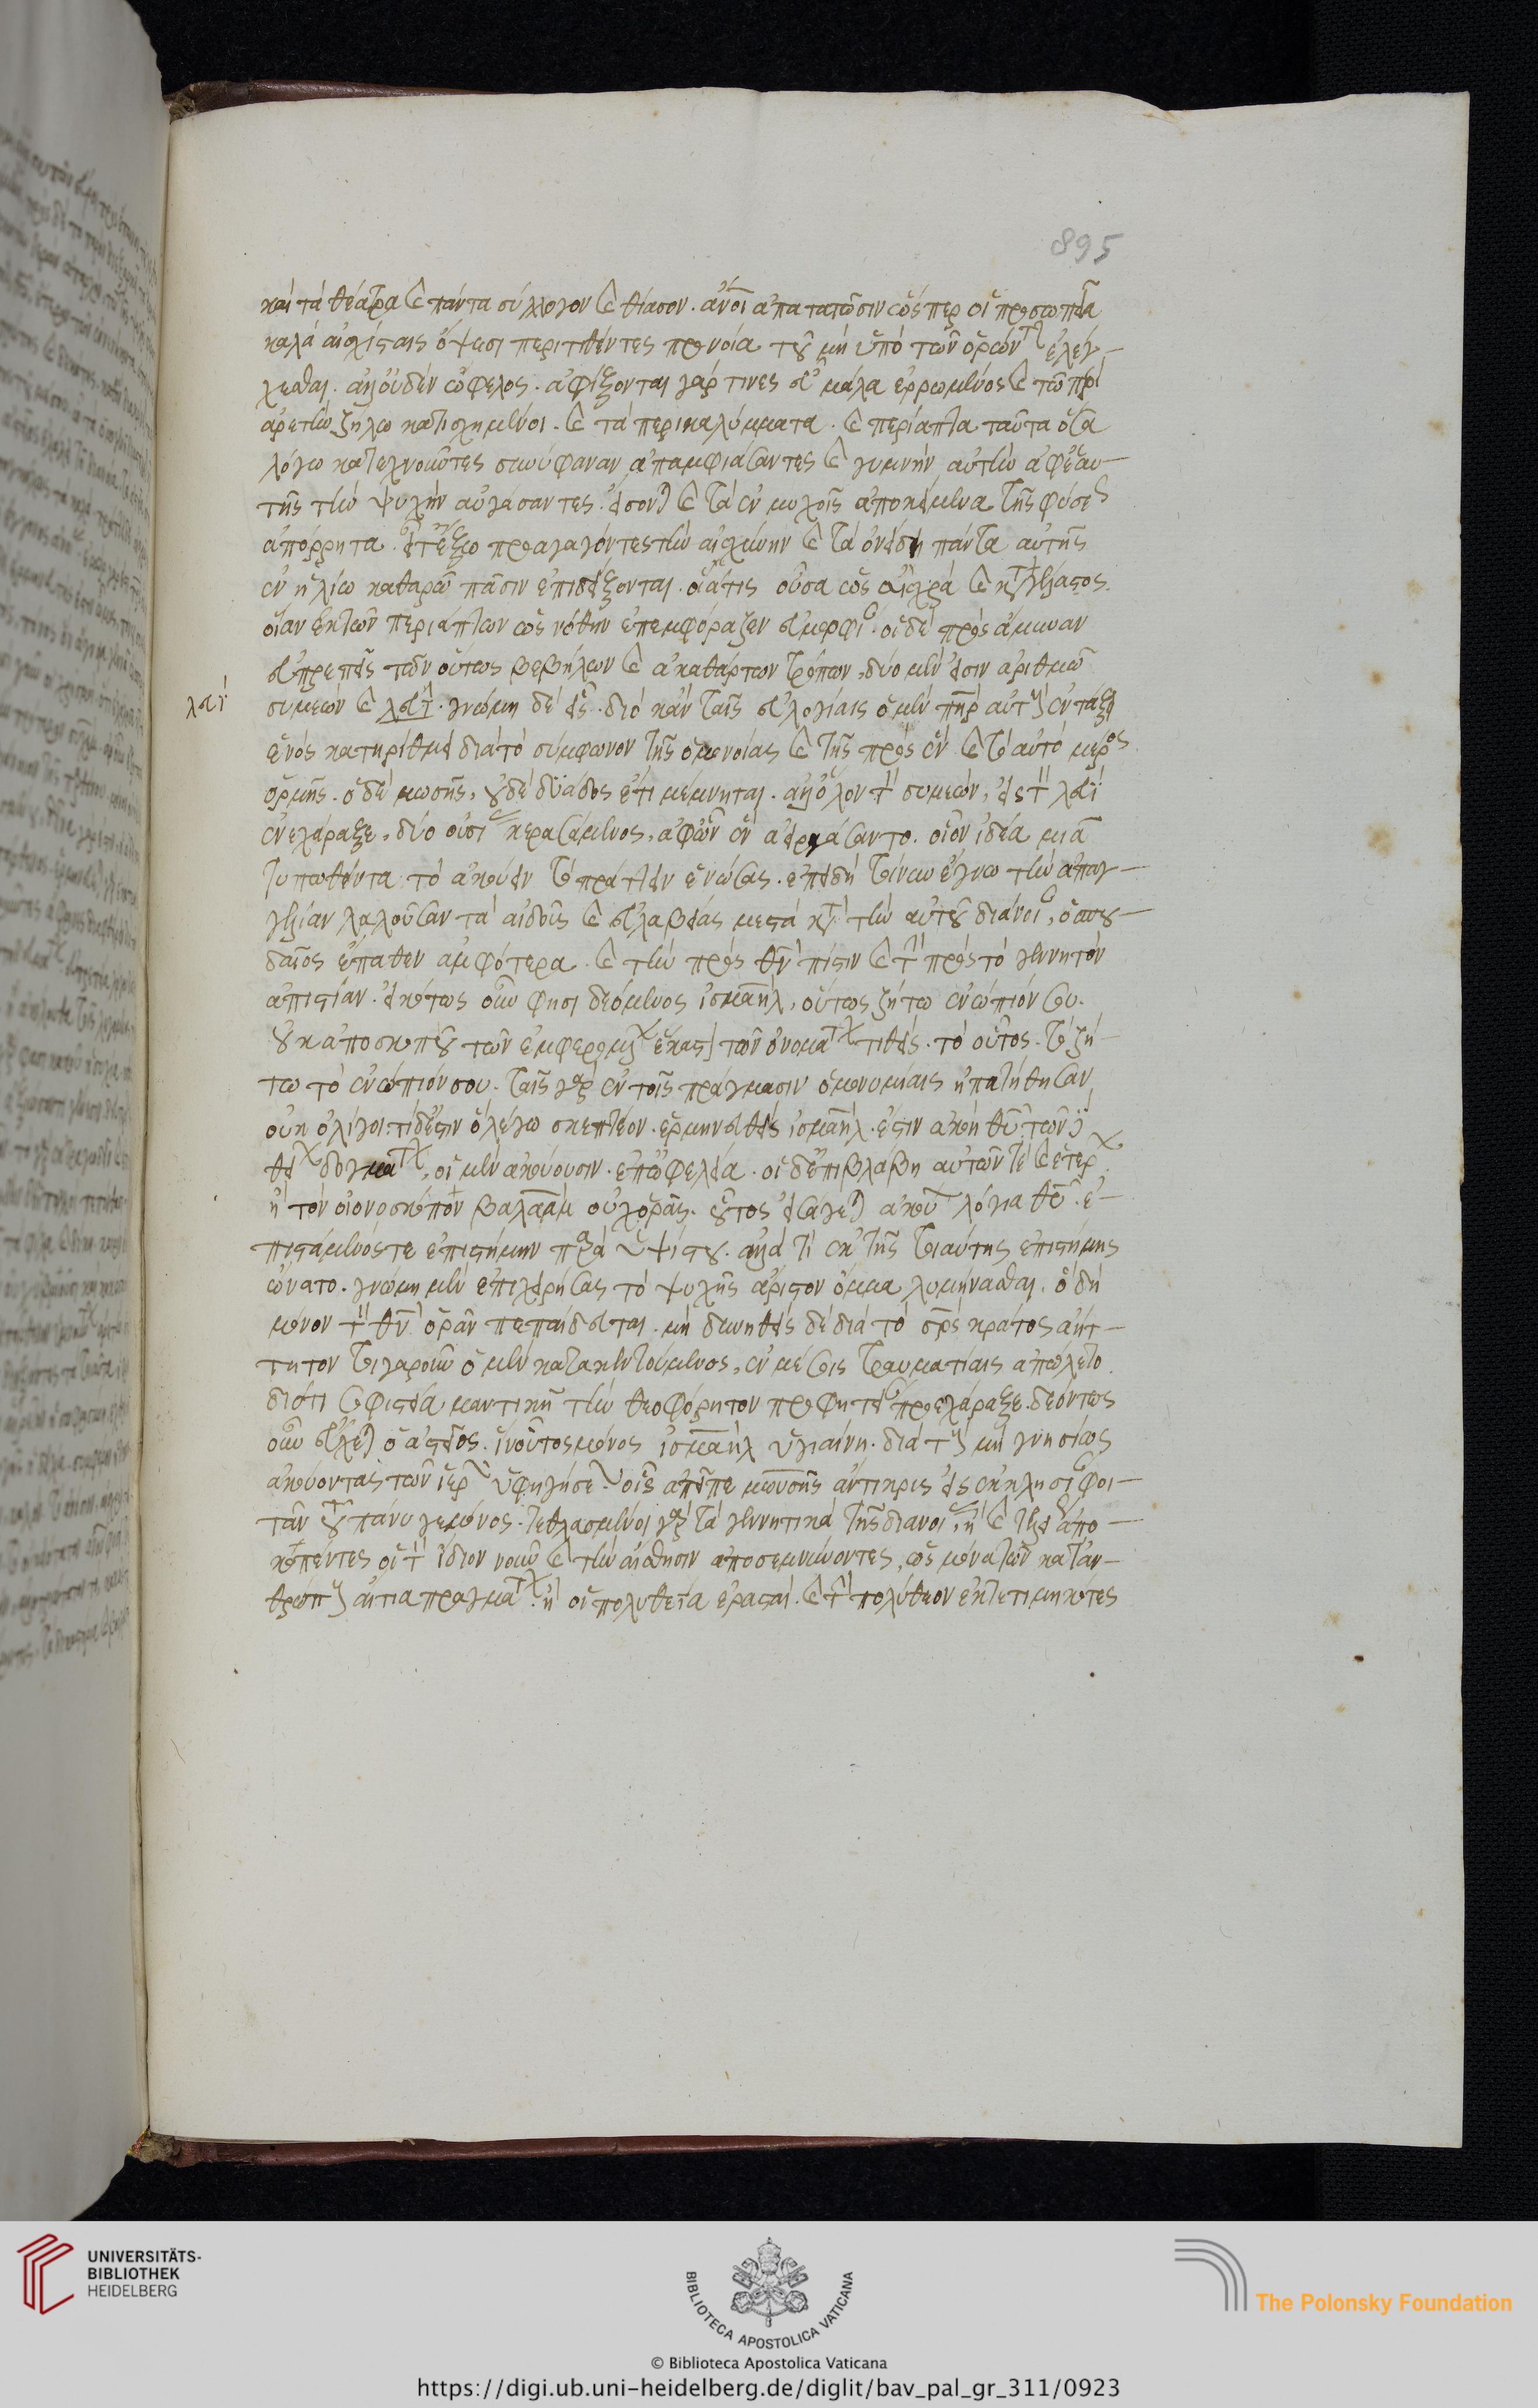 895
καὶ τὰ θέατρα καὶ πάντα σύλλογον καὶ θίασον. ἀνοι ἀπατατῶσιν ὥσπερ οἱ προσωπεῖα
καλὰ αἰσχίσταις ὄψεσι περιτιθέντες προνοία τοῦ μὴ ὑπὸ τῶν ὁρώντων ἐλέγ-
χεσθαι. ἀλλ' οὐδὲν ὤφελος. ἀφίξονται γάρ τινες εὖ μάλα ἐρρωμένος καὶ τῶ περὶ
ἀρετὴν ζήλω κατισχημένοι. καὶ τὰ περικαλύμματα. καὶ περίαπτα ταῦτα ὅσα
λόγω κατεχνοκῶτες συνύφαναν ἀπαμφιάσαντες καὶ γυμνὴν αὐτὴν ἀφ' ἑαυ-
τῆς τὴν ψυχὴν αὐγάσαντες. εἴσονται καὶ τὰ ἐν μυχοῖς ἀποκείμενα τῆς φύσεως
ἀπόρρητα. εἶτ' ἔξω προαγαγόντες τὴν αἰσχύνην καὶ τὰ ὀνείδη πάντα αὐτῆς
ἐν ἡλίω καθαρῶ πᾶσιν ἐπιδείξονται. οἵα τις οὖσα ὡς αἰσχρὰ καὶ καταγέλαστος.
οἵαν ἐκ τῶν περιάπτων ὡς νόθην ἐπεμφόραζεν εὐμορφίαν. οἱ δὲ πρὸς ἄμυναν
εὐπρεπεῖς τῶν οὕτως βεβήλων καὶ ἀκαθάρτων τρόπων, δύο μὲν εἰσιν ἀριθμῶ
λευί
συμεὼν καὶ λευί. γνώμη δὲ εἷς. διὸ κἂν ταῖς εὐλογίαις ὁ μὲν πηρ αὐτοὺς ἐν τάξει
ἑνὸς κατηριθμεῖ διὰ τὸ σύμφωνον τῆς ὁμονοίας καὶ τῆς πρὸς ἓν καὶ τὸ αὐτὸ μέρος
ὁρμῆς. ὁ δὲ μωσῆς, οὐδὲ δυάδος ἔτι μέμνηται. ἀλλ' ὅλον τὸν συμεὼν, εἰς τὸν λευί
ἐνεχάραξε, δύο οὐσίας κερασάμενος, ἀφ' ὧν ἓν ἀειργάσαντο. οἷον ἰδέα μιᾶ
τυπωθέντα τὸ ἀκούειν τὸ πράττειν ἑνώσας. ἐπειδὴ τοίνυν ἔγνω τὴν ἀπαγ-
γελίαν λαλοῦσαν τὰ αἰδοῦς καὶ εὐλαβείας μεστὰ κατὰ τὴν αὐτοῦ διάνοιαν, ὁ σπου-
δαῖος ἔπαθεν ἀμφότερα. καὶ τὴν πρὸς θν πίστιν καὶ τὴν πρὸς τὸ γεννητὸν
ἀπιστίαν. εἰκότως οὖν φησι δεόμενος ἰσμαὴλ, οὕτως ζήτω ἐνώπιόν σου.
οὐκ ἀποσκοποῦ τῶν ἐμφερομένων ἕκαστον τῶν ὀνομάτων τιθείς. τὸ οὗτος. τὸ ζή-
τω τὸ ἐνώπιόν σου. ταῖς γὰρ ἐν τοῖς πράγμασιν ὁμωνυμίαις ἠπατήθησαν
οὐκ ὀλίγοι. τί δ' ἐστιν ὃ λέγω σκεπτέον. ἑρμηνευθεὶς ἰσμαὴλ. ἐστιν ἀκοὴ θυ. τῶν
θείων δογμάτων, οἱ μὲν ἀκούουσιν. ἐπ' ὠφελεία. οἱ δ' ἐπὶ βλάβη αὐτῶν τὲ καὶ ἑτέρων
ἢ τὸν οἰονοσκόπον βαλαὰμ οὐχ ὁρᾶς. οὗτος εἰσάγεται ἀκούων λόγια θυ. ἐ-
πιστάμενός τε ἐπιστήμην παρὰ ὑψίστου. ἀλλὰ τί ἐκ τῆς τοιαύτης ἐπιστήμης
ὤνατο. γνώμη μὲν ἐπιχειρήσας τὸ ψυχῆς ἄριστον ὄμμα λυμήνασθαι, ὃ δὴ
μόνον τὸν θν ὁρᾶν πεπαίδευται. μὴ δυνηθεὶς δὲ διὰ τὸ σρς κράτος ἀήτ-
τητον τοιγαροῦν ὁ μὲν κατακεντούμενος, ἐν μέσοις τραυματίαις ἀπώλετο
διότι σοφιστεία μαντικῆ τὴν θεοφόρητον προφητείαν προεχάραξε. δεόντως
οὖν εὔχεται ὁ ἀστεῖος. ἵν' οὗτος μόνος ἰσμαὴλ ὑγιαίνη. διὰ τοὺς μὴ γνησίως
ἀκούοντας τῶν ἱερῶν ὑφηγήσεων οἷς ἀπεῖπε μωυσῆς ἄντικρις εἰς ἐκκλησίαν φοι-
τᾶν τοῦ πάνυ γεμόνος. τεθλασμένοι γὰρ τὰ γεννητικὰ τῆς διανοίας, ἢ καὶ τελείως ἀπο-
κοπέντες οἱ τὸν ἴδιον νοῦν καὶ τὴν αἴσθησιν ἀποσεμνύνοντες, ὡς μόνα τῶν κατ' ἀν-
θρώπους αἴτια πραγμάτων. ἢ οἱ πολυθεΐα ἐρασταί. καὶ τὸν πολύθεον ἐκτετιμηκότες
UNIVERSITÄTS-
BIBLIOTHEK
HEIDELBERG
BIBLIOTECA APOSTOLICA VATICANA
The Polonsky Foundation
© Biblioteca Apostolica Vaticana
https://digi.ub.uni-heidelberg.de/diglit/bav_pal_gr_311/0923